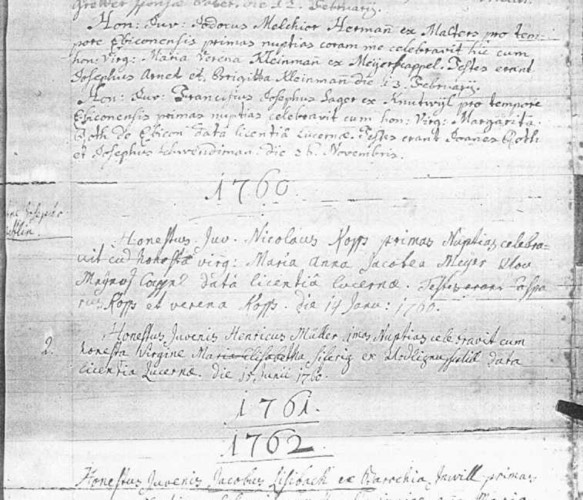 Hon: Juv: Jodocus Melchior Herman ex Malters pro tem-
pore Ebiconensis primas nuptias coram me celebravit hic cum
hon: Virg: Maria Verena Kleinman ex Meyerscappel. Testes erant
Josephus Arnet et Brigitta Kleinman die 13. Februarij.
Hon: Juv: Franciscus Josephus Sager ex Knutwyl pro tempore
Ebiconensis primas nuptias celebravit cum hon: Virg: Margarita
de Ebicon data licentiâ Lucernæ. Testes erant Joanes
et Josephus Schwendiman. die 26. Novembris.
1760.
Honestus Juv. Nicolaus Kopp primas Nuptias celebra-
vit cu honesta virg: Maria Anna Jacobea Meyer
data licentiâ Lucernæ. Testes erant Caspa
rus Kopp et verena Kopp. die 14 Janu: 1760.
2. Honestus Juvenis Henricus Müller imas Nuptias celebravit cum
honesta Virgine Maria Elisabetha ex data
licentia Lucernæ. die 15 Junii 1760.
1761.
1762.
Honestus Juvenis Jacobus Lisibach ex Parochia Inwill primas